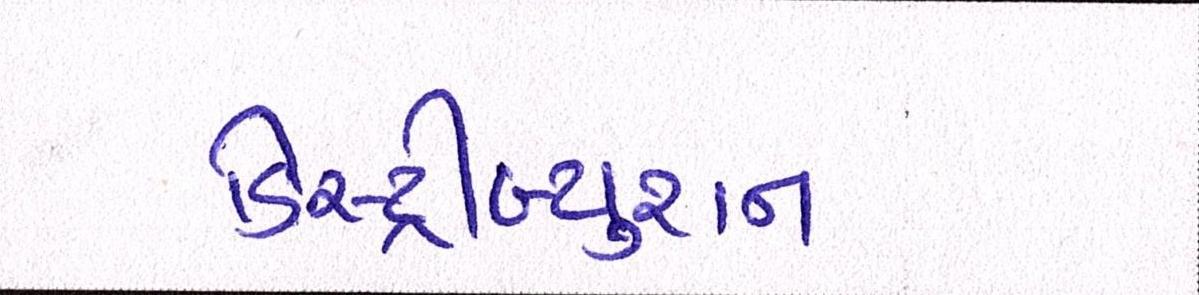 ડિસ્ટ્રીબ્યુશન